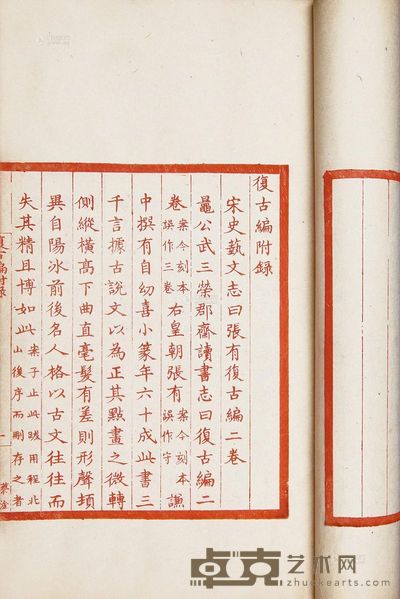 復古編附錄
宋史藝文志曰張有復古編二卷
鼂公武三榮郡齋讀書志曰復古編二
卷案今刻本誤作三卷右皇朝張有案今刻本誤作守謙
中撰有自幼喜小篆年六十成此書三
千言據古說文以為正其點畫之微轉
側縱橫高下曲直毫髮有差則形聲頓
異自陽冰前後名人格以古文往往而
失其精且博如此案子止此跋用程北山後序而刪存之者
復古編附錄
一
卓克艺术网
www.zhuokearts.com